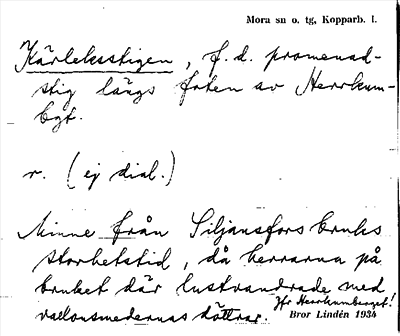 Mora sn o. tg, Kopparb. l.
Kärleksstigen, f.d. promenad-
stig längs foten av Herrkum-
bgt.
r. (ej dial.)
Minne från Siljansfors bruks
storhetstid, då herrarna på
bruket där lustvandrade med
vallonsmedernas döttrar.
Jfr Herrkumberget!
Bror Lindén 1934